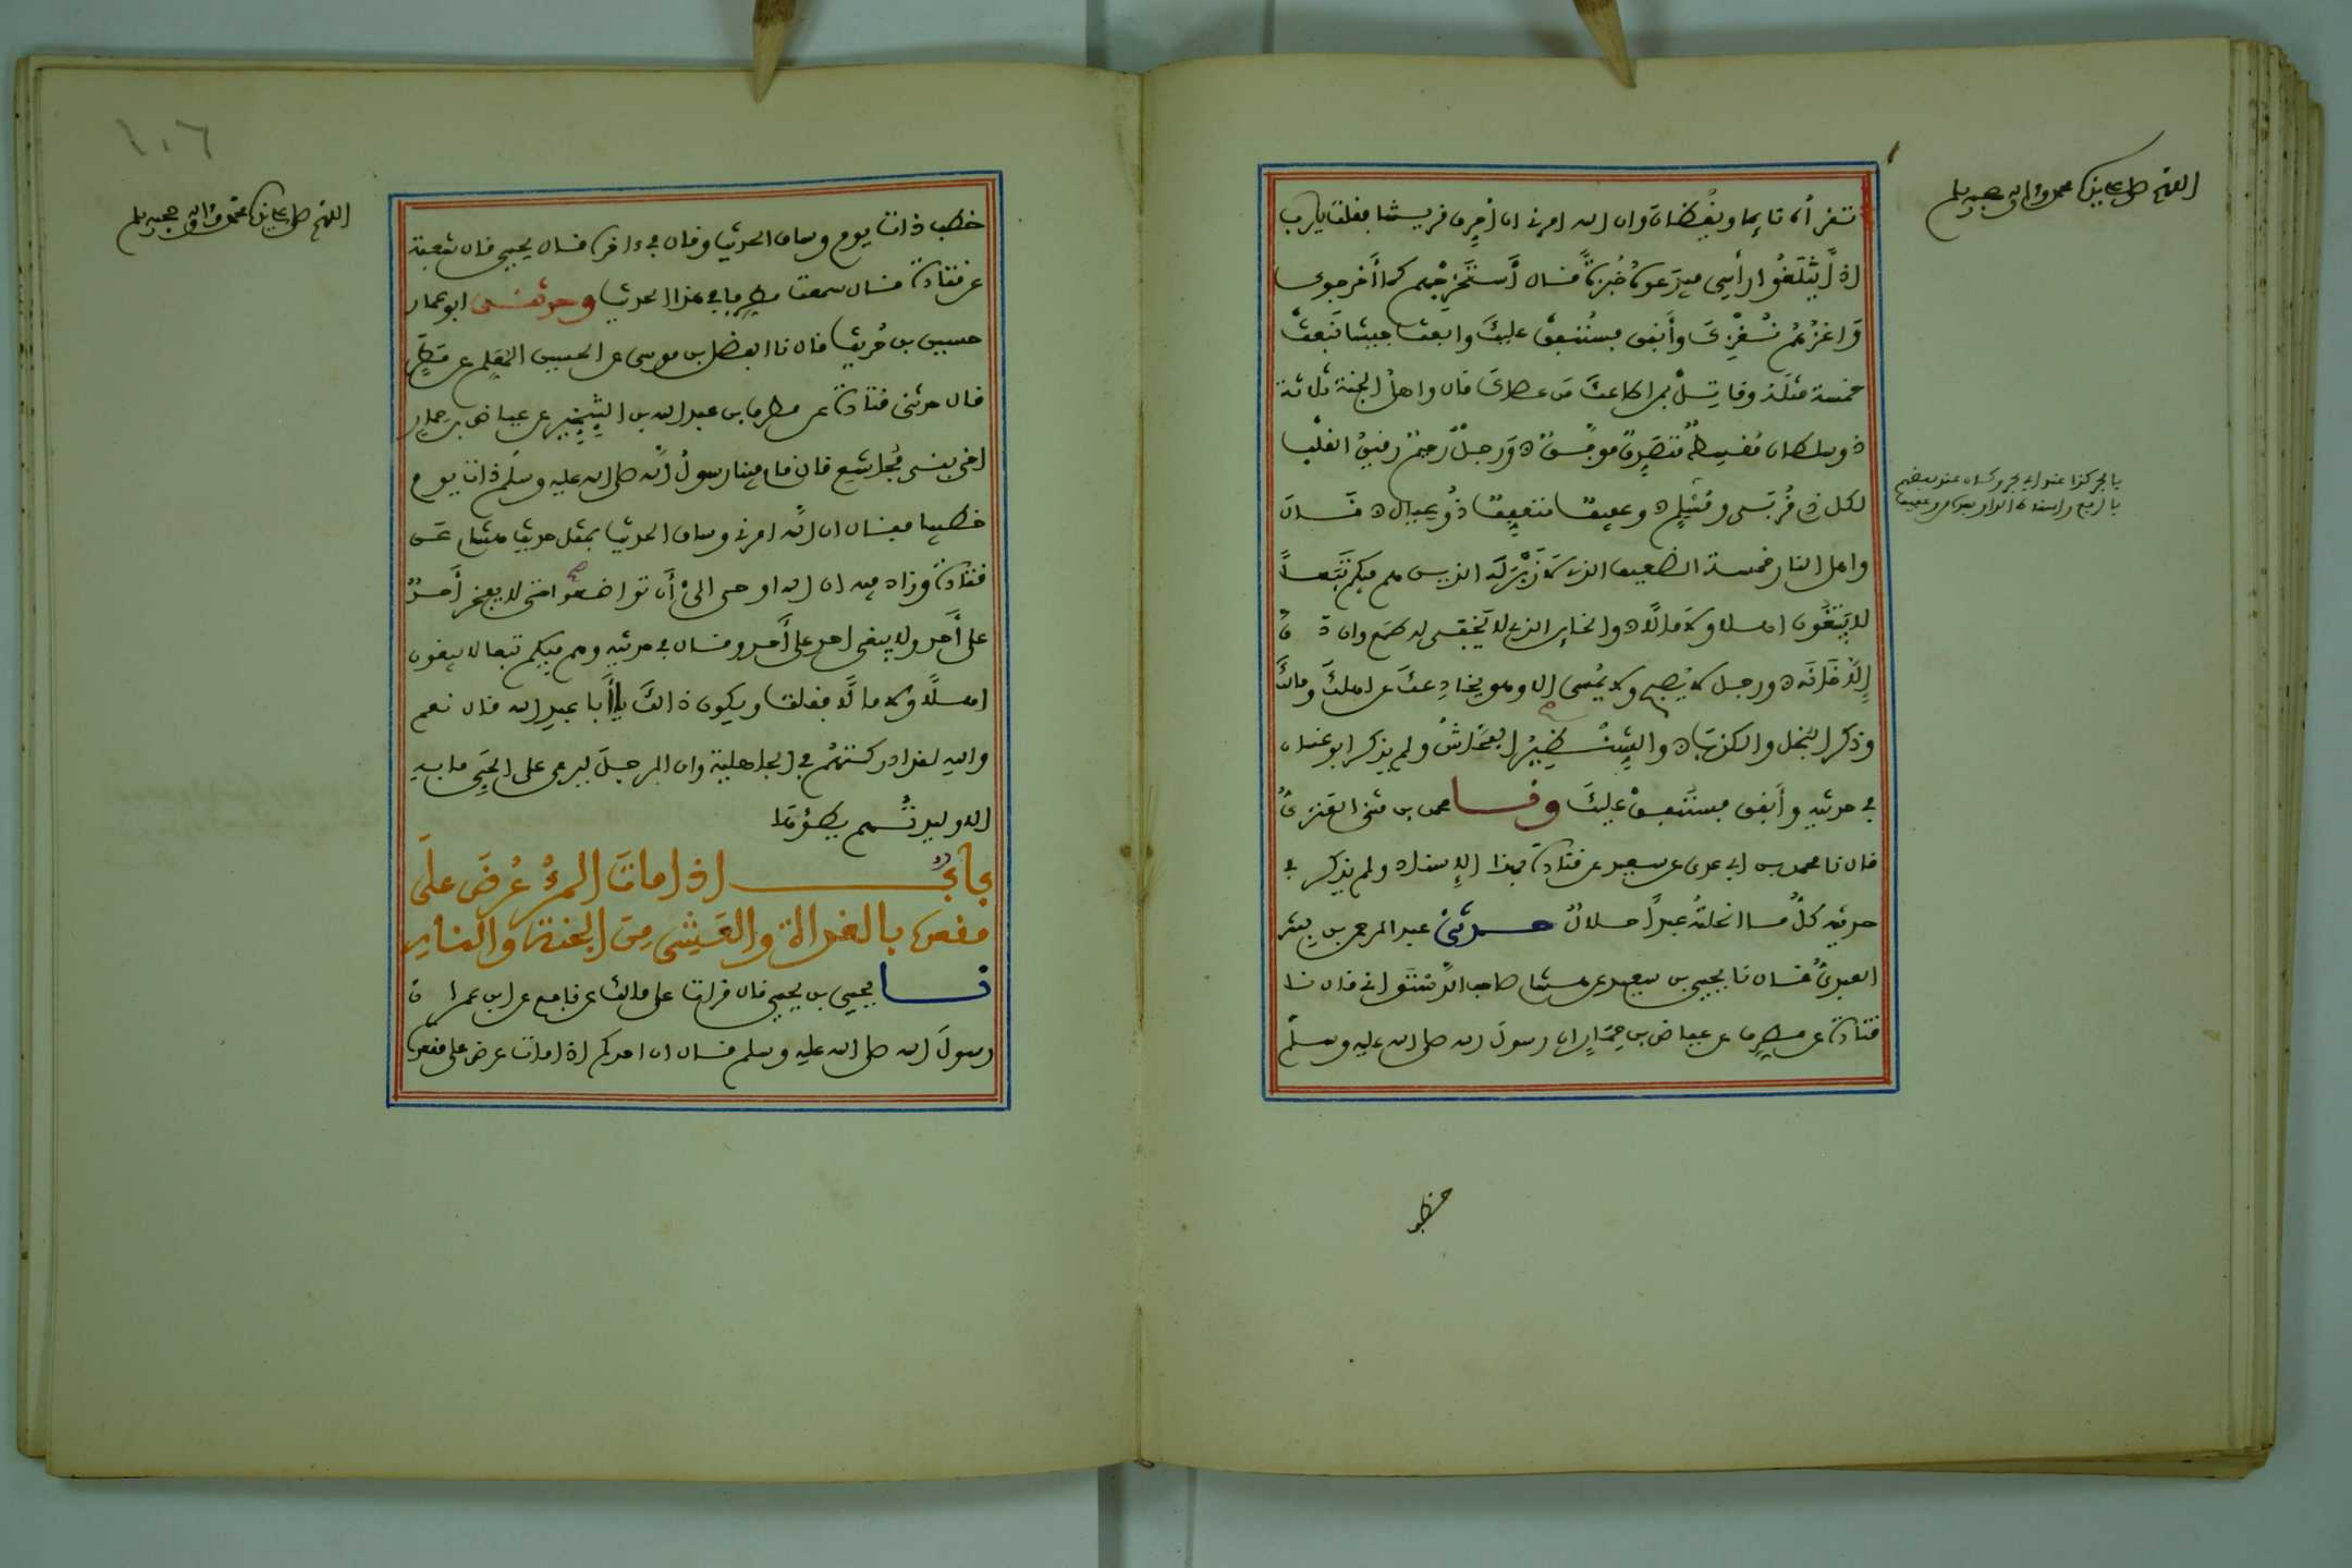 اللهم صل على سيدنا محمد وءاله وصحبه وسلم
تقرأه نايما ويقظان وان الله امرني ان أحرق قريشا فقلت يارب
اذا يثلغوا رأسي فيدعوه خبزة فقال استخرجهم كما أخرجوك
واغزهم نغزك وأنفق فسننفق عليك وابعث جيشا نبعث
خمسة مثله وقاتل بمن اطاعك من عصاك قال واهل الجنة ثلاثة
ذو سلطان مقسط متصدق موفق ورجل رحيم رقيق القلب
لكل ذي قربى ومسلم وعفيف متعفف ذو عيال قال
بالجر كذا عند ابي بحر وكان عند بعضهم
بالرفع واسقاط الواو بعده من وعفيف
واهل النار خمسة الضعيف الذي لا زبر له الذين هم فيكم تبعا
لا يتبعون اهلا ولا مالا والخاين الذي لا يخفى له طمع وان دق
إلا خانه ورجل لا يصبح ولا يمسي الا وهو يخادعك عن اهلك ومالك
وذكر البخل والكذب والشنظير الفحاش ولم يذكر ابو غسان
في حديثه وأنفق فسننفق عليك ونا محمد بن مثنى العنزي
قال نا محمد بن ابي عدي عن سعيد عن قتادة بهذا الإسناد ولم يذكر في
حديثه كل مال نحلته عبدا حلال حدثني عبد الرحمن بن بشر
العبدي قال نا يحيى بن سعيد عن هشام صاحب الدستواني قال نا
قتادة عن مطرف عن عياض بن حمار ان رسول الله صلى الله عليه وسلم
خطب
١٠٦
اللهم صل على سيدنا محمد وءاله وصحبه وسلم
خطب ذات يوم وساق الحديث وقال في ءاخره قال يحيى قال شعبة
عن قتادة قال سمعت مطرفا في هذا الحديث وحدثني ابو عمار
حسين بن حريث قال نا الفضل بن موسى عن الحسين المعلم عن مطر
قال حدثني قتادة عن مطرف بن عبد الله بن الشخير عن عياض بن حمار
اخي بني مجاشع قال قام فينا رسول الله صلى الله عليه وسلم ذات يوم
خطيبا فقال ان الله امرني وساق الحديث بمثل حديث هشام عن
قتادة وزاد فيه ان الله اوحى الي أن تواضعوا حتى لا يفخر أحد
على أحد ولا يبغي احد على أحد وقال في حديثه وهم فيكم تبعا لا يبغون
اهلا ولا مالا فقلت ويكون ذالك يا أبا عبد الله قال نعم
والله لقد ادركتهم في الجاهلية وان الرجل ليرعى على الحي ما به
الا وليدتهم يطؤها
باب اذا مات المرء عرض على
مقعده بالغداة والعشي من الجنة والنار
نا يحيى بن يحيى قال قرات على مالك عن نافع عن ابن عمر ان
رسول الله صلى الله عليه وسلم قال ان احدكم اذا مات عرض على مقعده